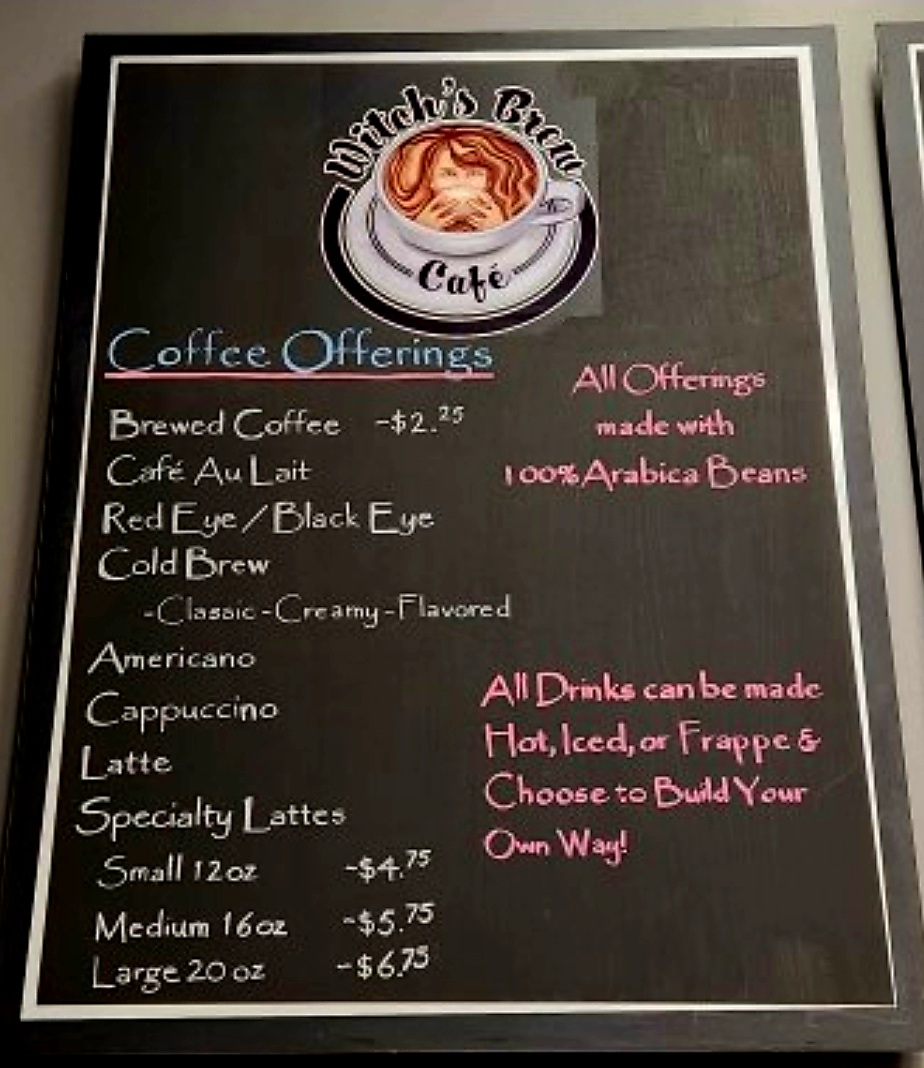 Witch's Brew
Café
Coffee Offerings
All Offerings
made with
100% Arabica Beans
Brewed Coffee -$2.25
Café Au Lait
Red Eye/Black Eye
Cold Brew
-Classic -Creamy -Flavored
Americano
Cappuccino
Latte
Specialty Lattes
Small 12oz -$4.75
Medium 16oz -$5.75
Large 20 oz -$6.75
All Drinks can be made
Hot, Iced, or Frappe &
Choose to Build Your
Own Way!